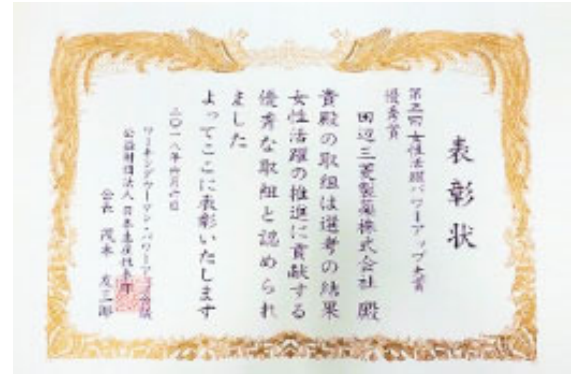 表彰状
女性活躍パワーアップ大賞
優秀賞
田辺三菱製薬株式会社 殿
貴殿の取組は選考の結果
女性活躍の推進に貢献する
優秀な取組と認められ
ました
よってここに表彰いたします
二〇一八年
ワーキングウーマン・パワーアップ会議
公益財団法人 日本生産性本部
会長 茂木 友三郎